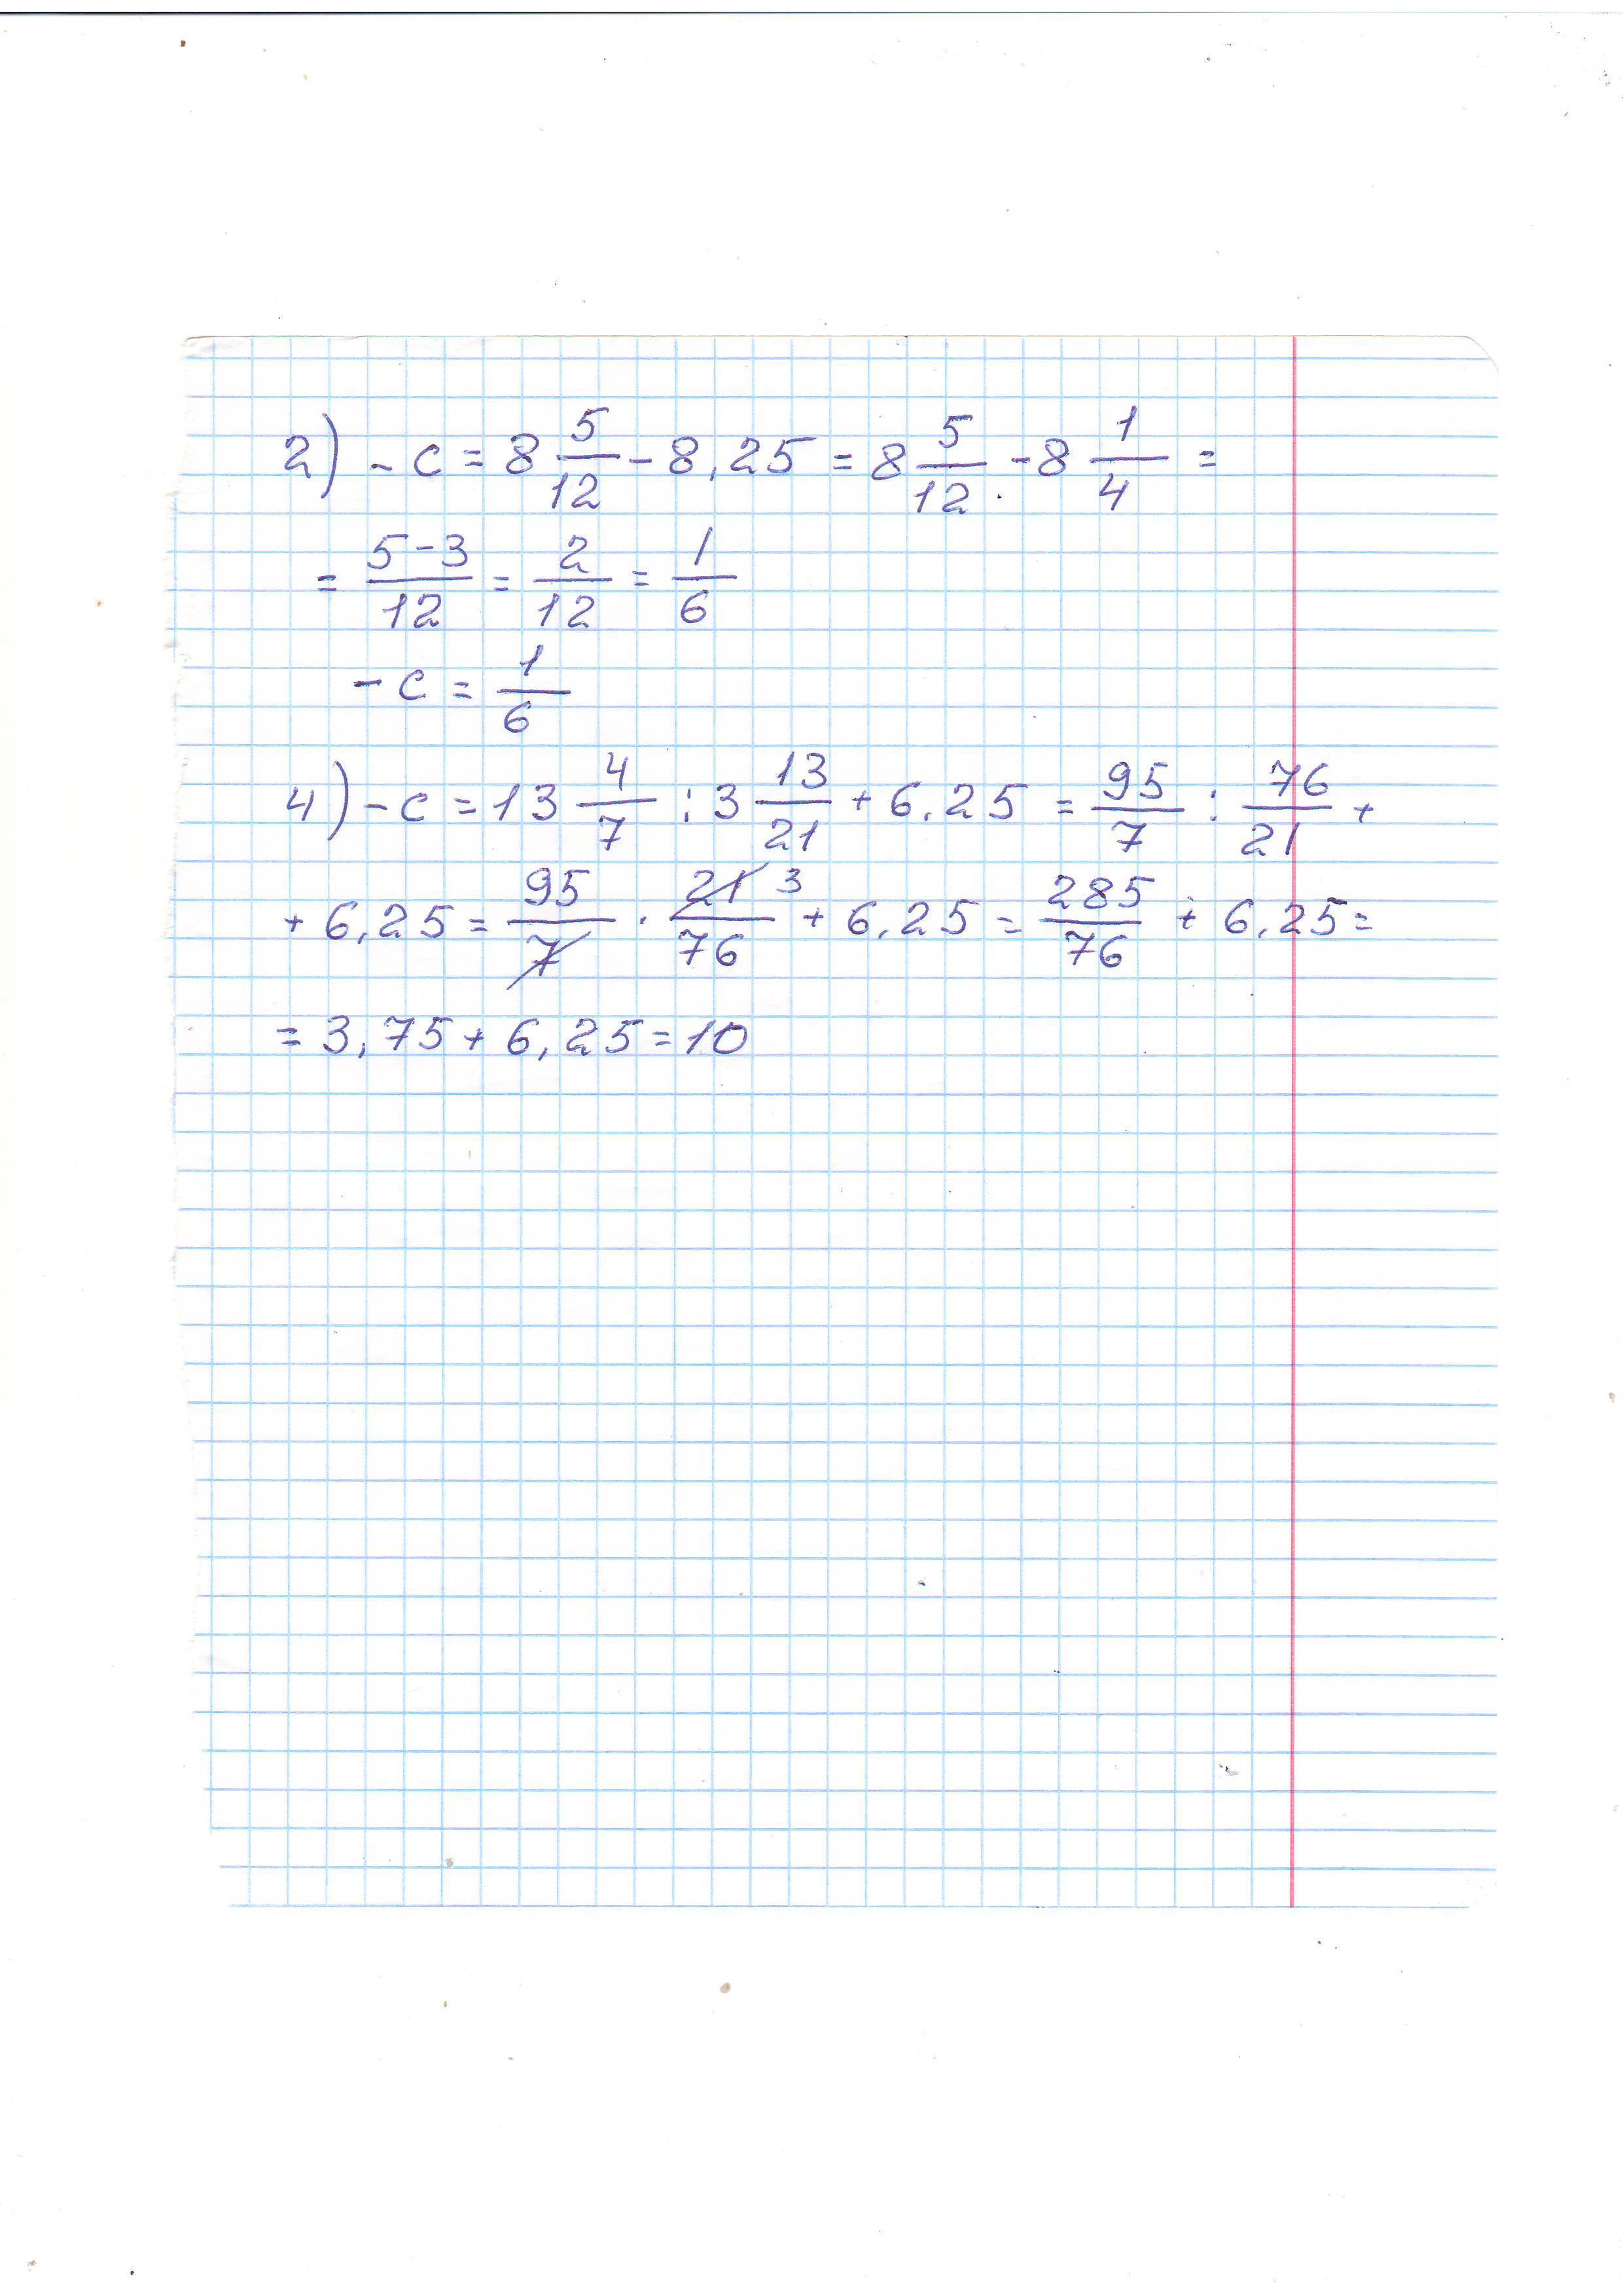 2) - c = 8 5/12 - 8,25 = 8 5/12 - 8 1/4 =
= (5-3)/12 = 2/12 = 1/6
- c = 1/6
4) - c = 13 4/7 : 3 13/21 + 6,25 = 95/7 : 76/21 +
+ 6,25 = 95/7 · 21 3/76 + 6,25 = 285/76 + 6,25 =
= 3,75 + 6,25 = 10